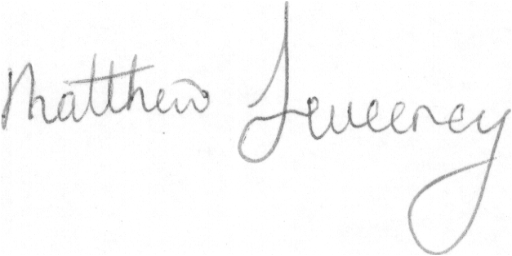 Matthew Sweeney